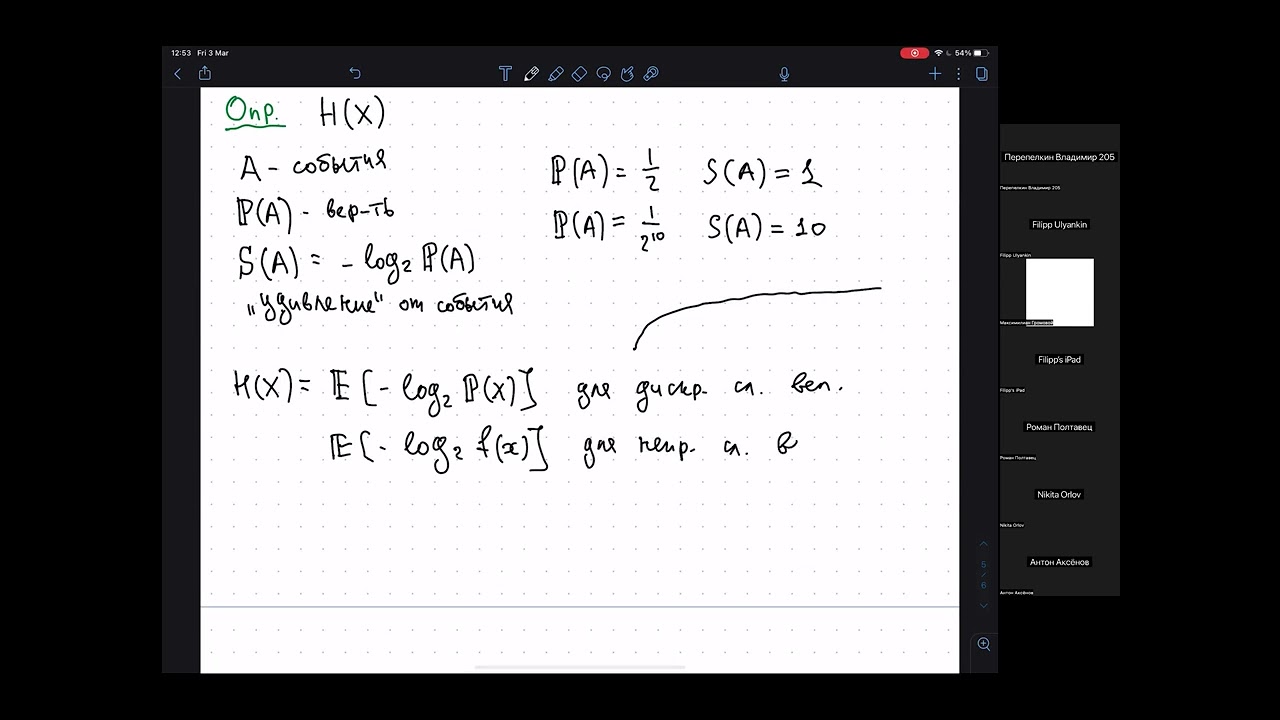 12:53 Fri 3 Mar
54%
Опр. H(X)
A - события
ℙ(A) - вер-ть
S(A) = - log₂ ℙ(A)
"удивление" от события
ℙ(A) = 1/2 S(A) = 1
ℙ(A) = 1/2¹⁰ S(A) = 10
H(X) = 𝔼 [- log₂ ℙ(X)] для дискр. сл. вел.
𝔼 [- log₂ f(x)] для непр. сл. в
5
/
6
Перепелкин Владимир 205
Перепелкин Владимир 205
Filipp Ulyankin
Filipp Ulyankin
Максимилиан Громовой
Filipp's iPad
Filipp's iPad
Роман Полтавец
Роман Полтавец
Nikita Orlov
Nikita Orlov
Антон Аксёнов
Антон Аксёнов